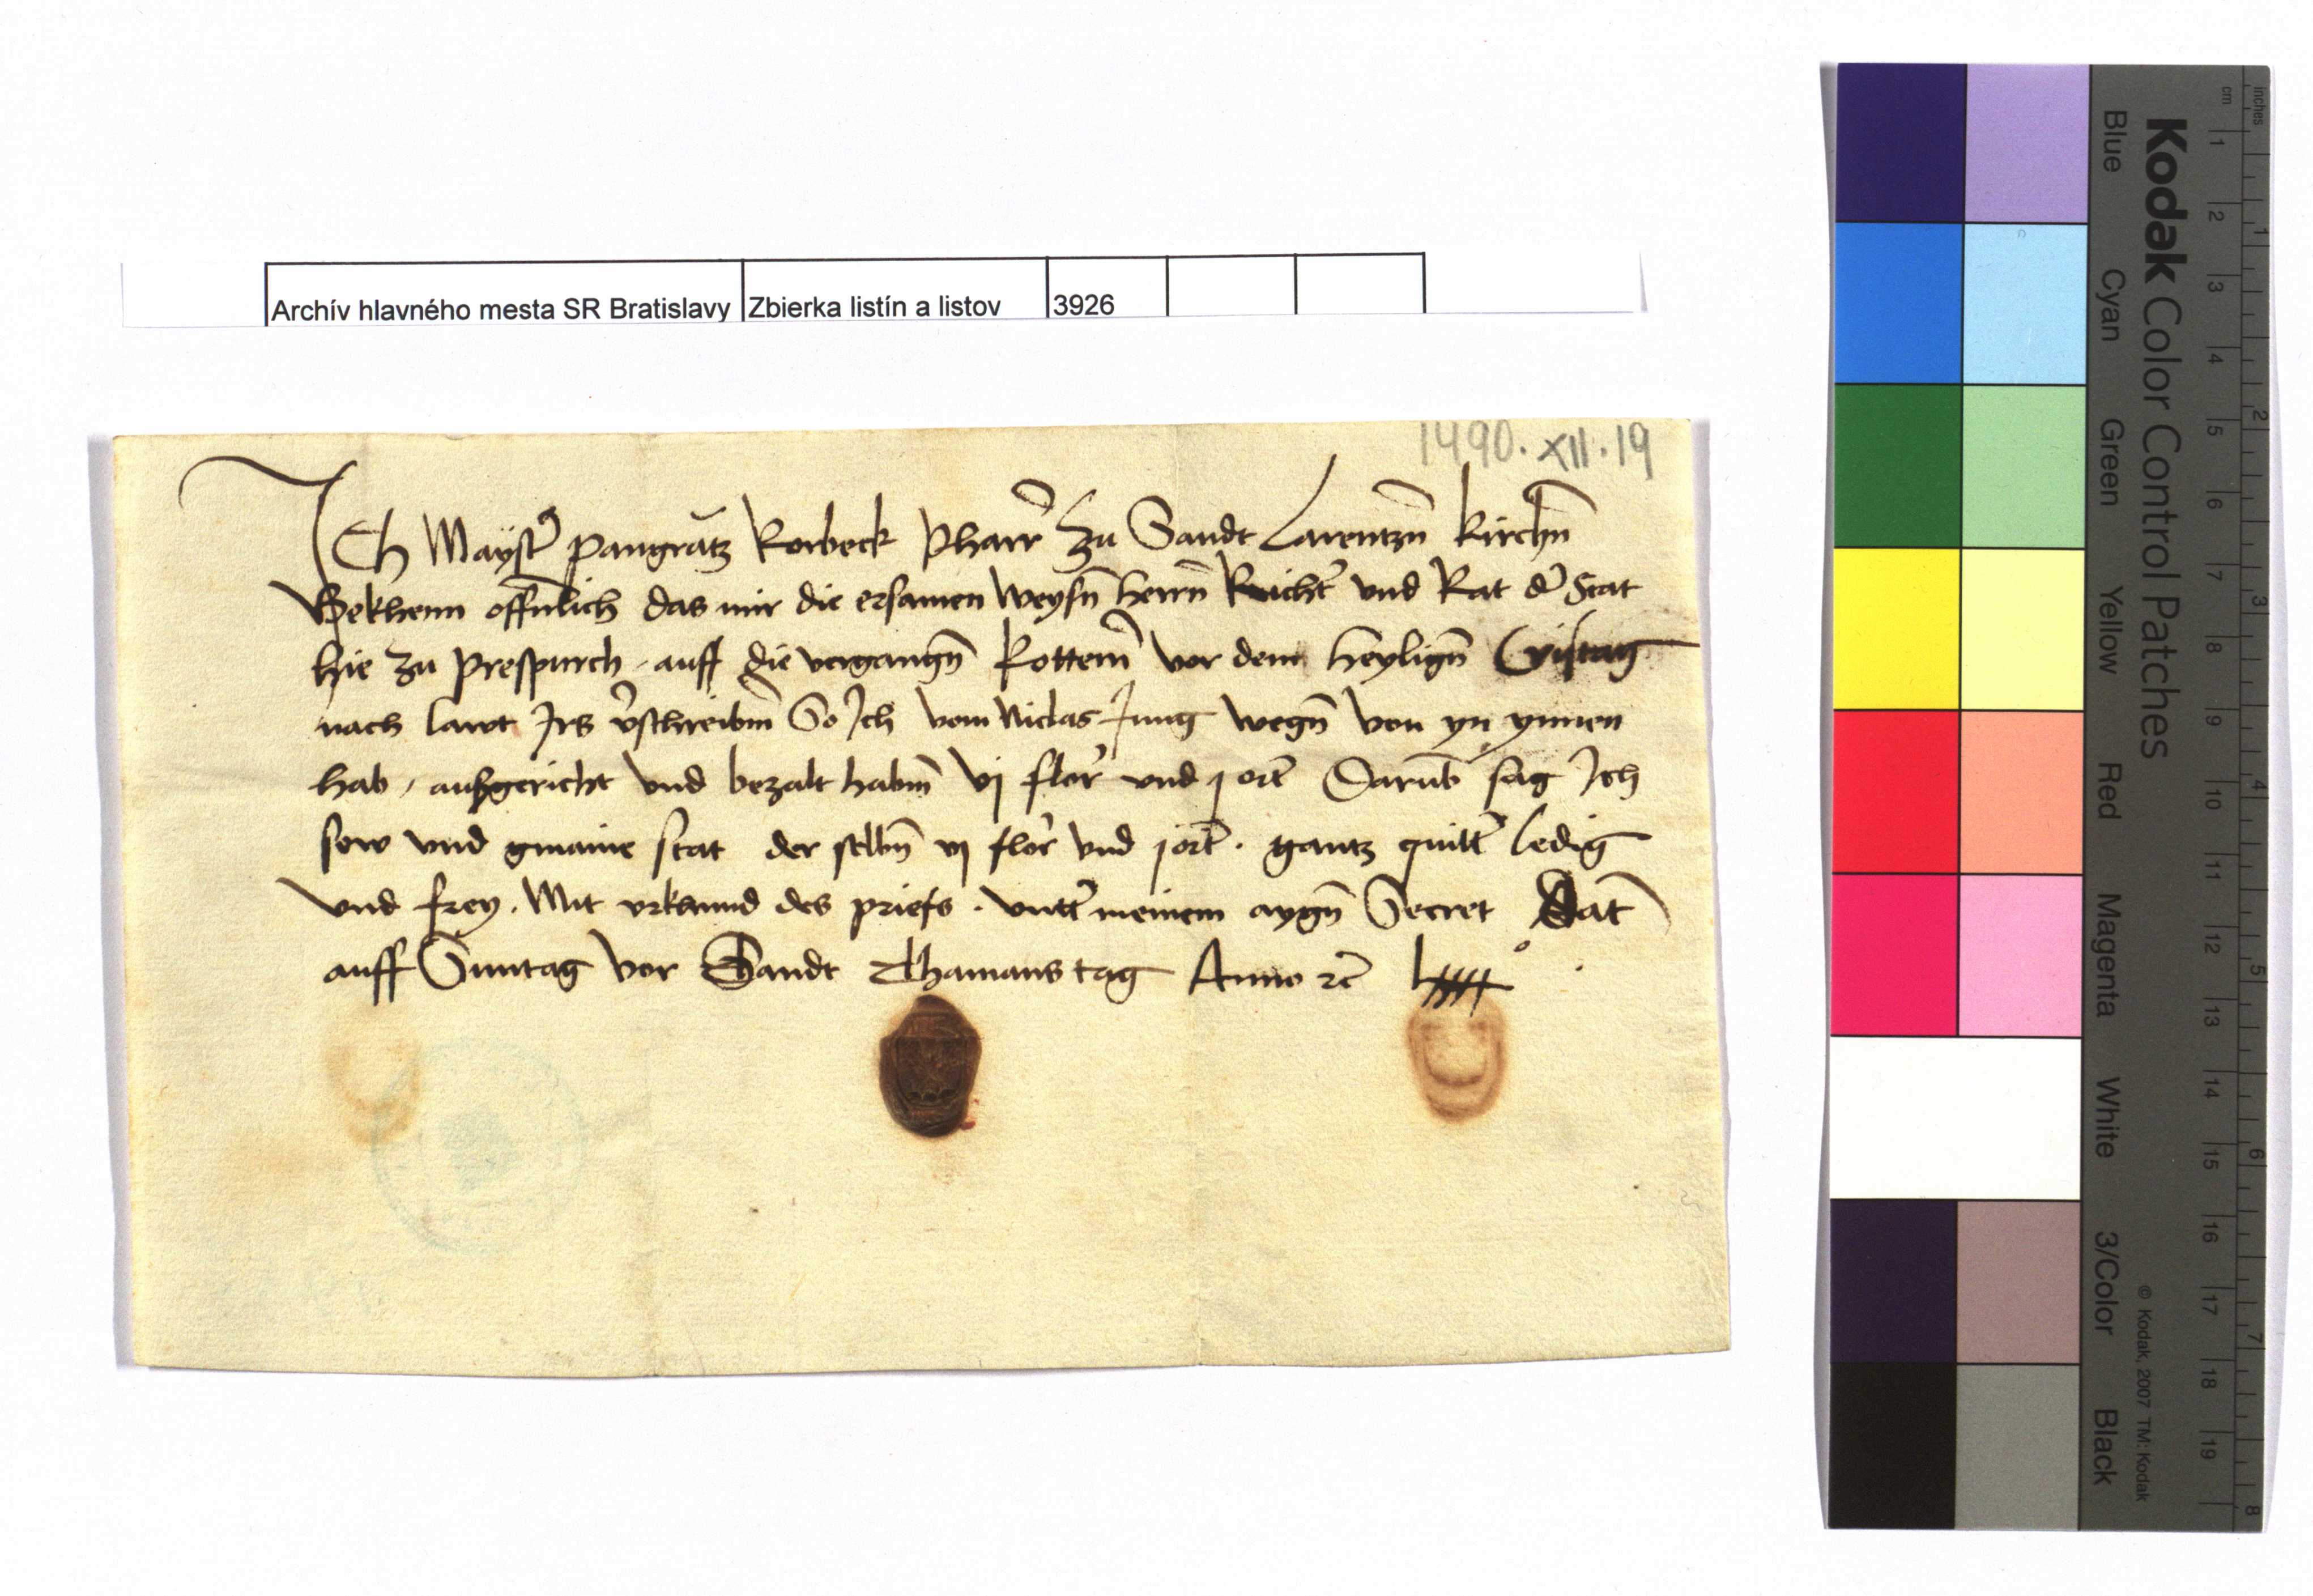 Archív hlavného mesta SR Bratislavy Zbierka listín a listov 3926
1490. XII. 19
Ich Mayst̉ pangrātz Rorbeck Pharr̉ zu Sandt Larentzn̄ kirchn̄
Bekhenn offn̄lich das mir die ersamen Weysn̄ herrn̄ Richt̉ vnd Rat d̉ Stat
hie zu Prespurch auff die vergangn̄ kottem̄ vor dem heylign̄ Cristag
nach lawt Irs v̉schreibm̄ So Ich vom Niclas Jung wegn̄ von yn ynnen
hab / auszgericht vnd bezalt habm̄ vj flor̉ vnd j ort̄ Darūb sag Ich
sew vnd gmaine stat der selbn̄ vj flor̉ vnd j ort̄ . gantz quitt̉ ledig
vnd frey . Mit vrkhund des priefs . vntt̉ meinem aygn̄ Secret Dat̄
auff Suntag vor Sandt Thamans tag Anno ꝛc̄ lxxxx°
Kodak Color Control Patches
Blue Cyan Green Yellow Red Magenta White 3/Color Black
© Kodak, 2007 TM: Kodak
cm 1 2 3 4 5 6 7 8 9 10 11 12 13 14 15 16 17 18 19
inches 1 2 3 4 5 6 7 8